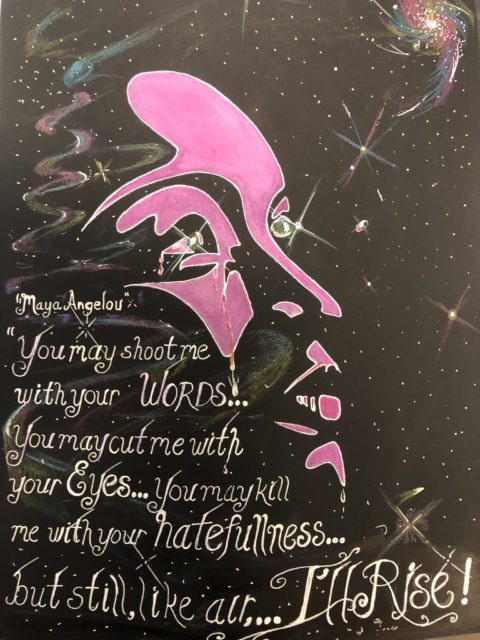 "Maya Angelou"
"You may shoot me
with your WORDS...
You may cut me with
your Eyes... You may kill
me with your hatefullness...
but still, like air,... I'll Rise!